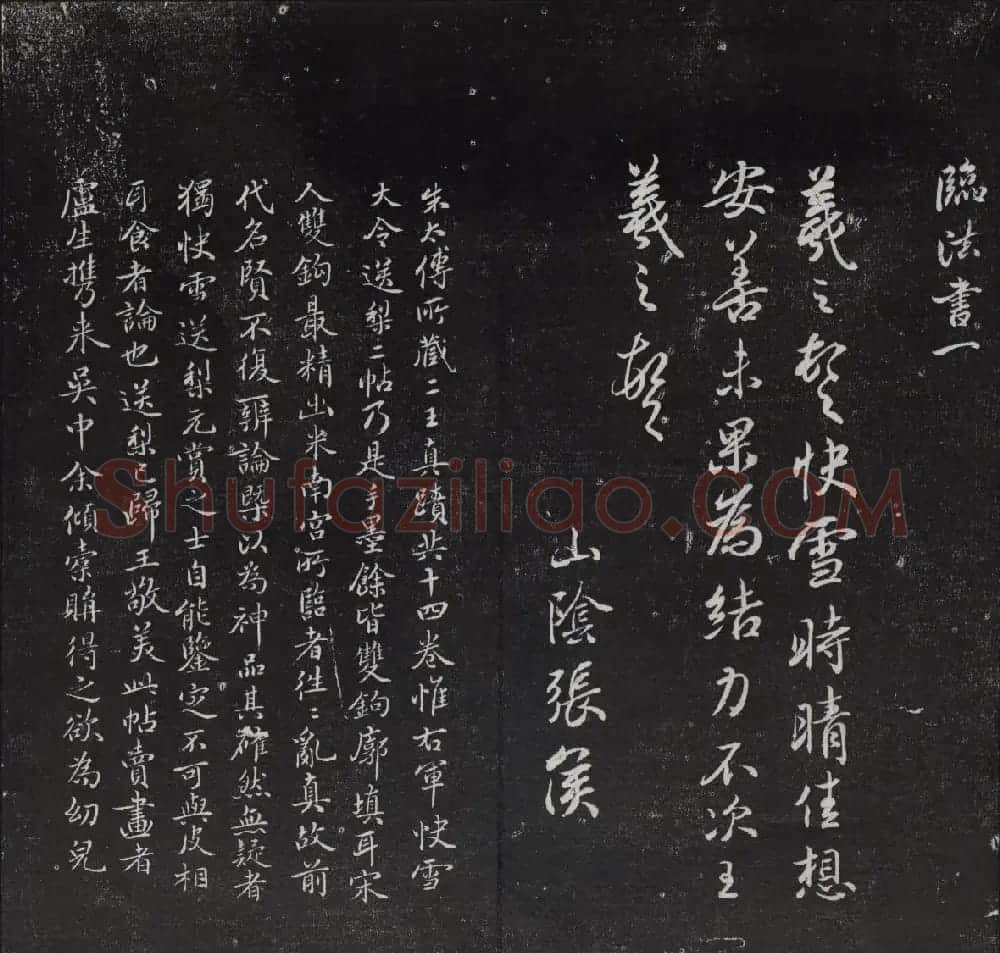 臨法書一
羲之頓首快雪時晴佳想
安善未果為結力不次王
羲之頓首
山陰張侯
朱太傅所藏二王真蹟共十四卷惟右軍快雪
大令送梨二帖乃是手墨餘皆雙鉤廓填耳宋
人雙鉤最精出米南宮所臨者往〻亂真故前
代名賢不復辨論槩以為神品其確然無疑者
獨快雪送梨元賞之士自能鑒定不可與皮相
耳食者論也送梨已歸王敬美此帖賣畫者
盧生攜来吳中余傾橐購得之欲為幼兒
Shufaziliao.COM